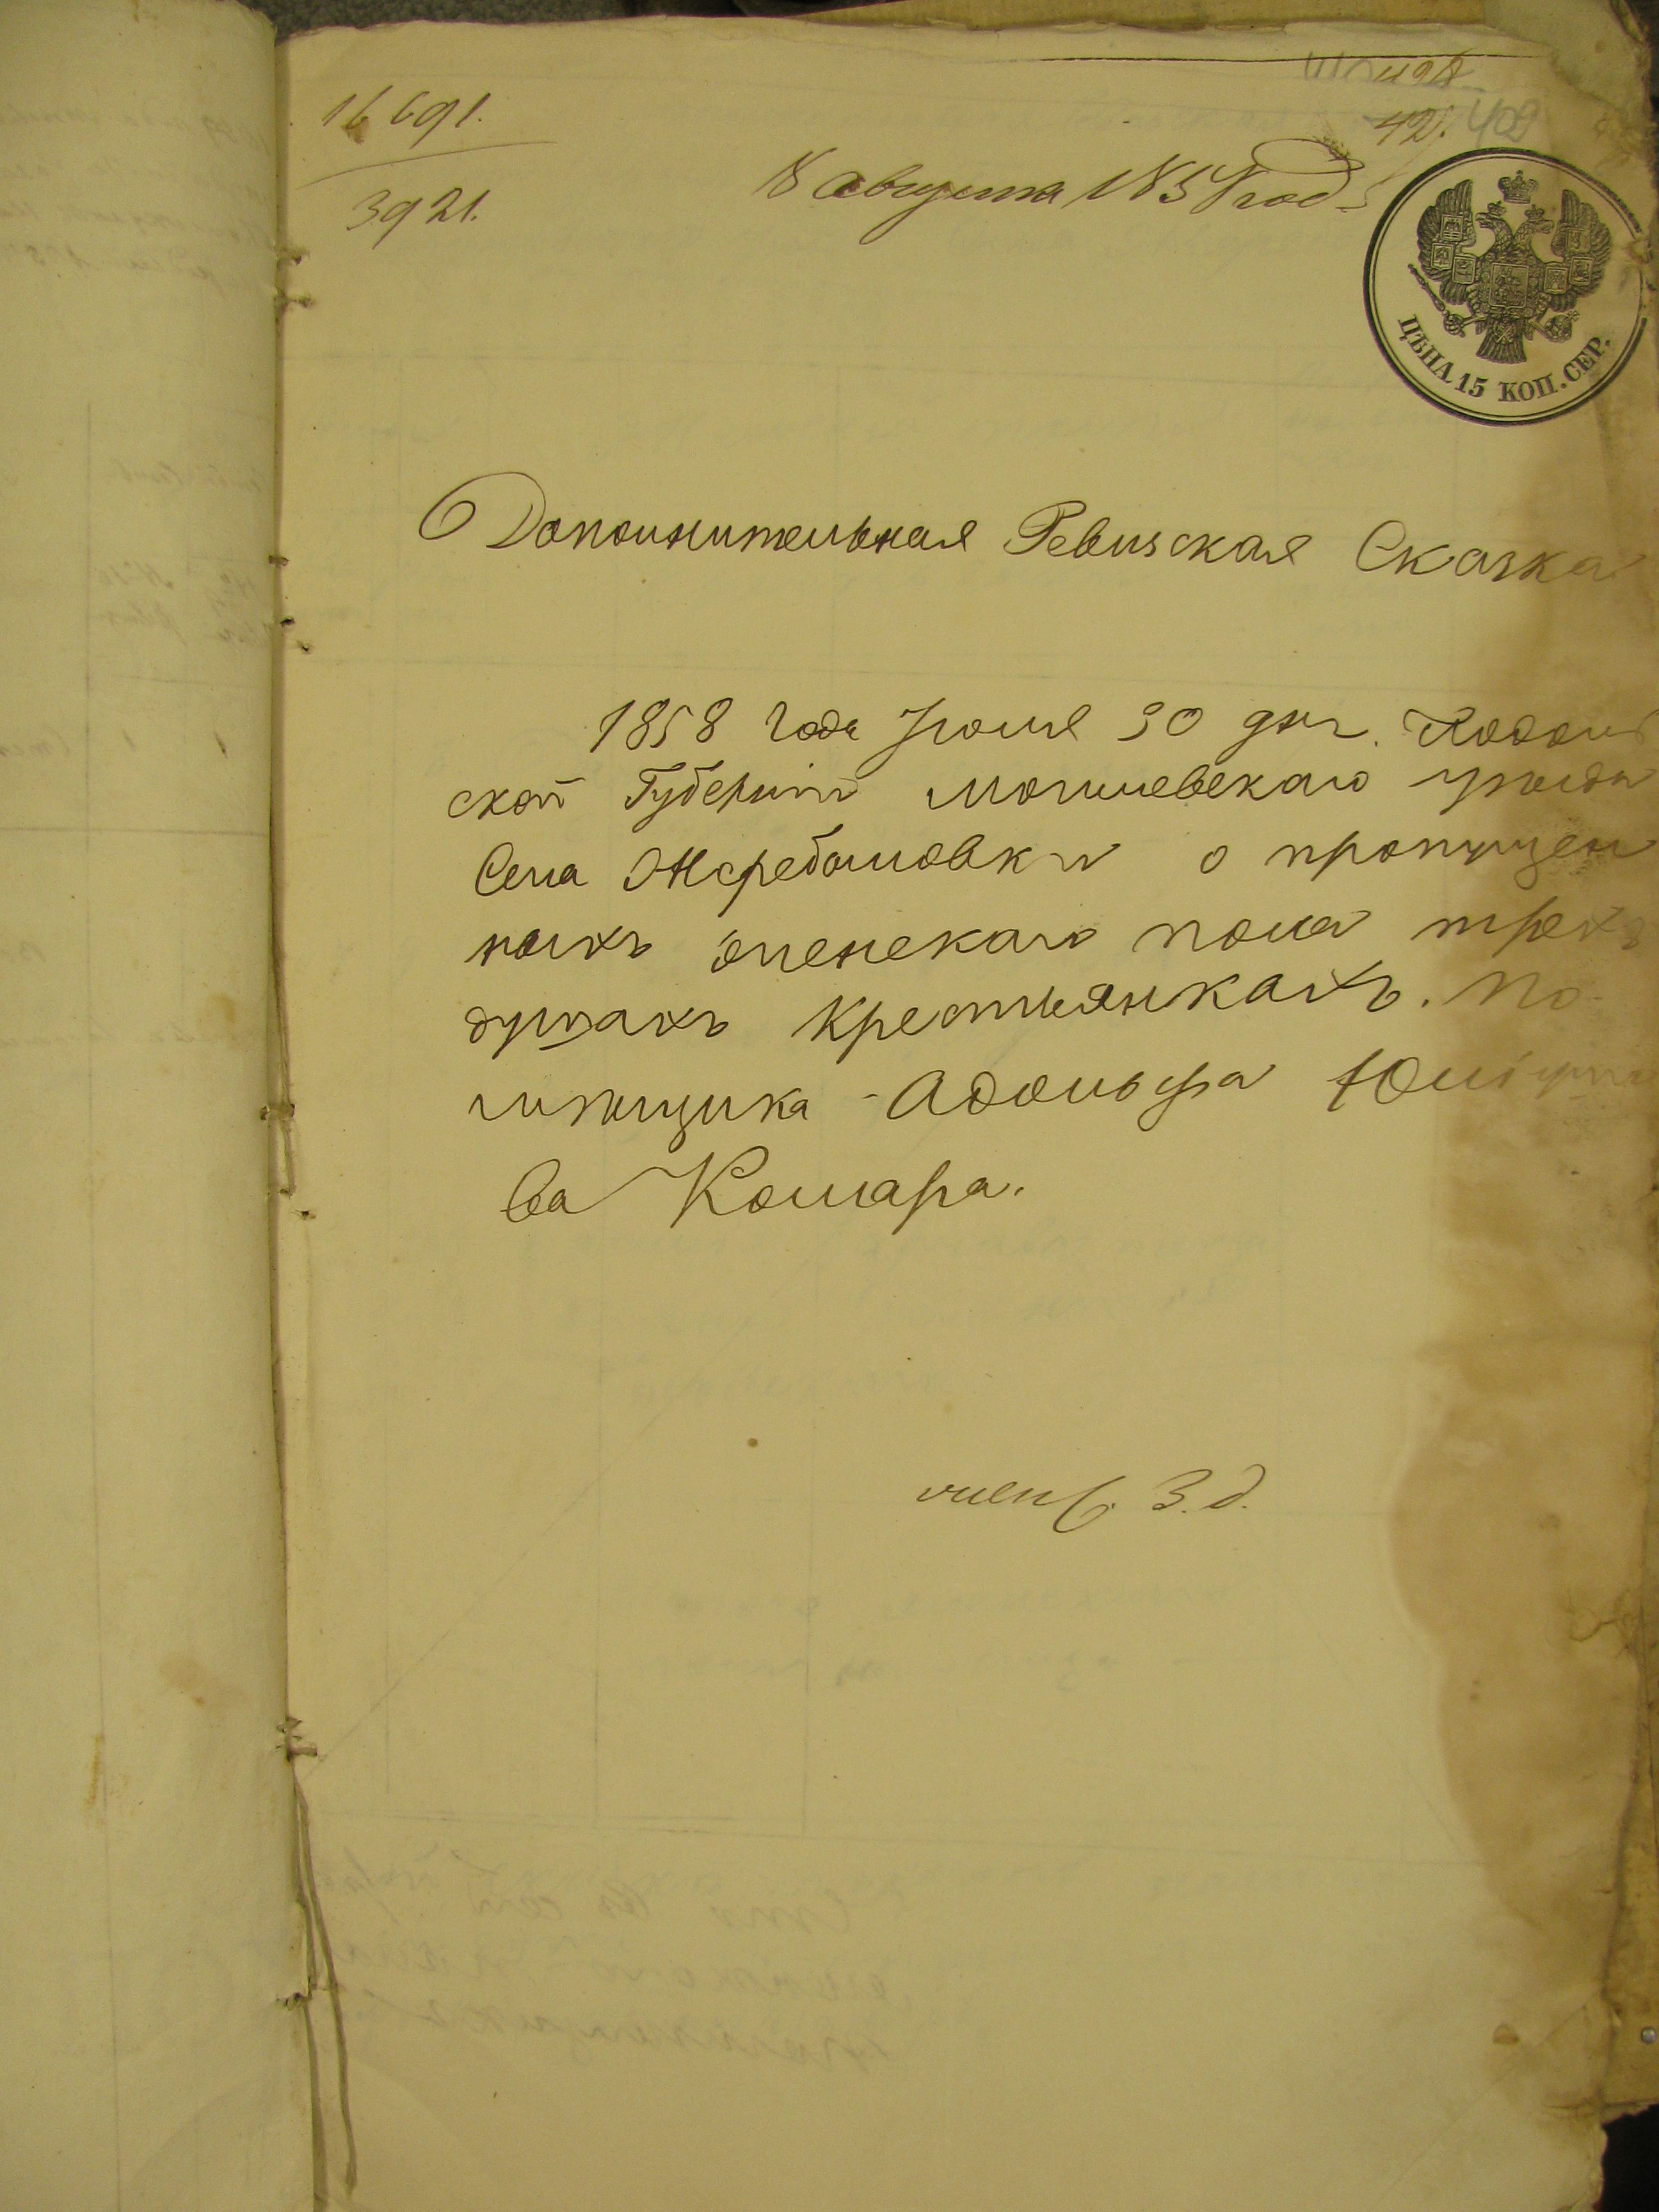 16691.
3921.
428
42. 402
18 августа 1858 года
ЦѢНА 15 КОП. СЕР.
Дополнительная Ревизская Сказка
1858 года Іюля 30 дня. Подоль
ской Губерніи Могилевскаго уѣзда
Села Жеребиловки о пропущен
ныхъ женскаго пола трехъ
душахъ крестьянкахъ. По-
мѣщика Адольфа
ва Комара.
женс. 3. д.